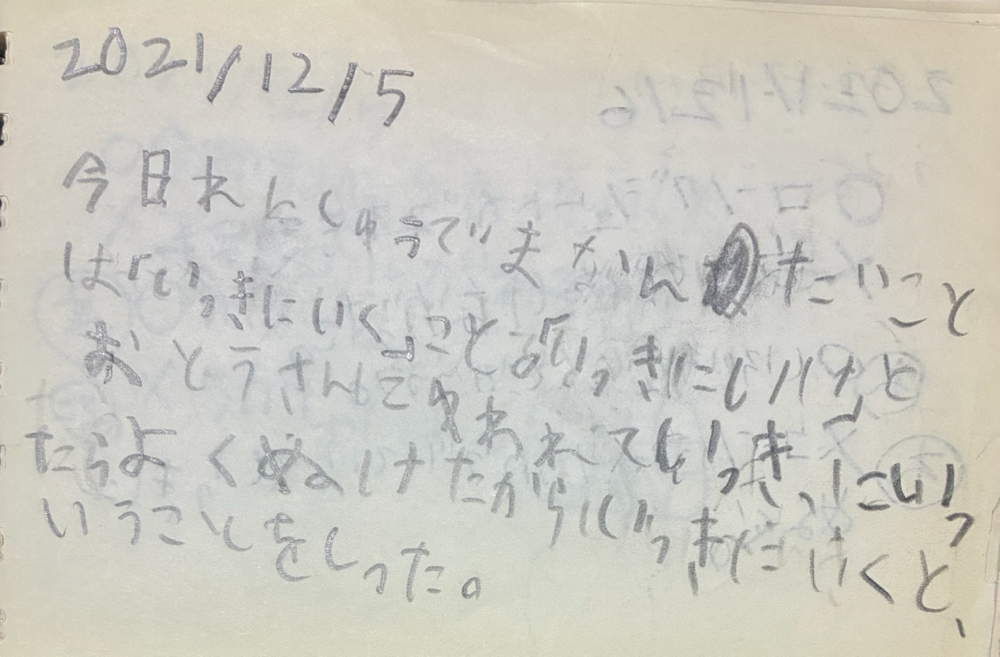 2021/12/5
今日れんしゅうでまなんだたいこと
は「いっきにいく」こと
おとうさんに「いっきにいけと
いわれていっきにいっ
たらよくぬけたからいっきにいくと、
いうことをしった。